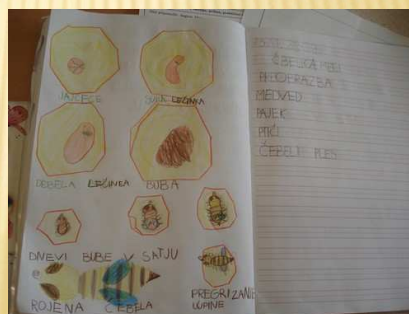 JAJČECE
SUHA LIČINKA
DEBELA LIČINKA
BUBA
DNEVI BUBE V SATJU
ROJENA ČEBELA
PREGRIZANJE
LUPINE
ČEBELA
MEDVED
PAJEK
PTIČI
ČEBELJI PLES